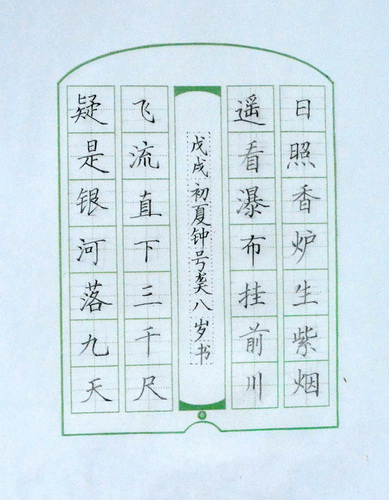 日照香炉生紫烟
遥看瀑布挂前川
戊戌初夏钟号龚八岁书
飞流直下三千尺
疑是银河落九天